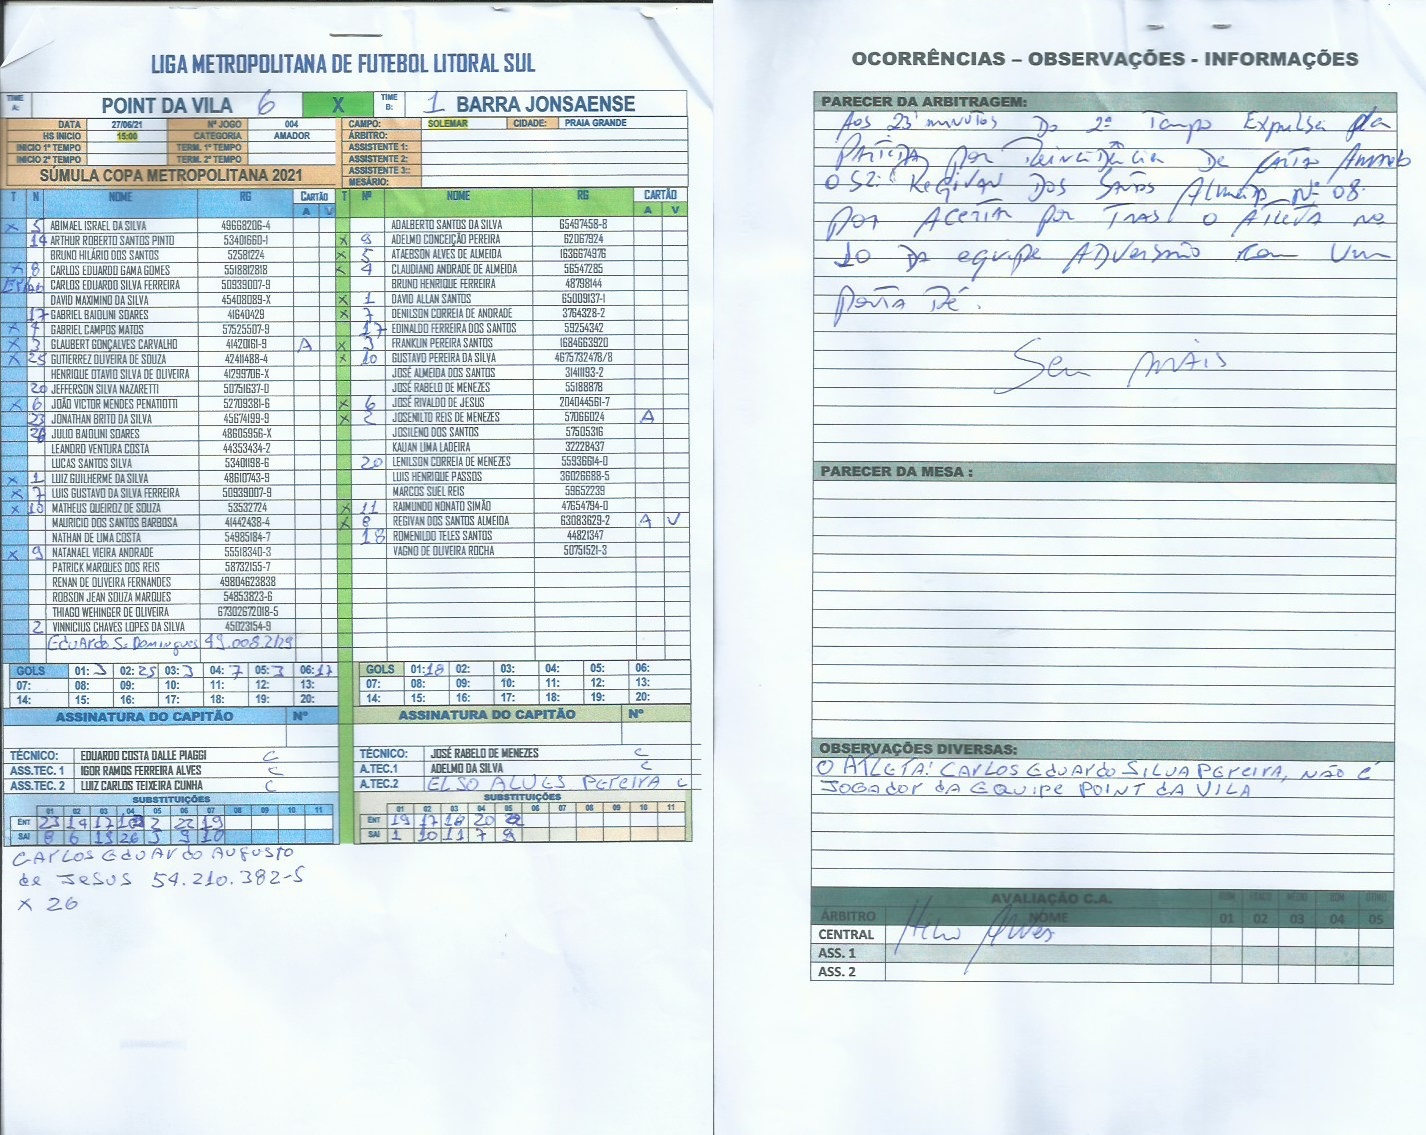 LIGA METROPOLITANA DE FUTEBOL LITORAL SUL
TIME A: POINT DA VILA 6 X TIME B: 1 BARRA JONSAENSE
DATA 27/06/21 Nº JOGO 004 CAMPO: SOLEMAR CIDADE: PRAIA GRANDE
HS INICIO 15:00 CATEGORIA AMADOR ÁRBITRO:
INICIO 1º TEMPO TERM. 1º TEMPO ASSISTENTE 1:
INICIO 2º TEMPO TERM. 2º TEMPO ASSISTENTE 2:
SÚMULA COPA METROPOLITANA 2021 ASSISTENTE 3::
MESÁRIO:
T N NOME RG CARTÃO A V T Nº NOME RG CARTÃO A V
X 5 ABIMAEL ISRAEL DA SILVA 49668206-4 ADALBERTO SANTOS DA SILVA 65497458-8
14 ARTHUR ROBERTO SANTOS PINTO 53401660-1 X 9 ADELMO CONCEIÇÃO PEREIRA 62067924
BRUNO HILÁRIO DOS SANTOS 52581224 X 5 ATAEBSON ALVES DE ALMEIDA 1636674976
X 8 CARLOS EDUARDO GAMA GOMES 5518812818 X 4 CLAUDIANO ANDRADE DE ALMEIDA 56547285
CARLOS EDUARDO SILVA FERREIRA 50939007-9 BRUNO HENRIQUE FERREIRA 48798144
DAVID MAXIMINO DA SILVA 45408089-X X 1 DAVID ALLAN SANTOS 65009137-1
17 GABRIEL BAIOLINI SOARES 41640429 X 7 DENILSON CORREIA DE ANDRADE 3764328-2
X 4 GABRIEL CAMPOS MATOS 57525507-9 17 EDINALDO FERREIRA DOS SANTOS 59254342
X 3 GLAUBERT GONÇALVES CARVALHO 41420161-9 A X 3 FRANKLIN PEREIRA SANTOS 1684663920
X 25 GUTIERREZ OLIVEIRA DE SOUZA 42411488-4 X 10 GUSTAVO PEREIRA DA SILVA 4675732478/8
HENRIQUE OTAVIO SILVA DE OLIVEIRA 41299706-X JOSÉ ALMEIDA DOS SANTOS 31411193-2
20 JEFFERSON SILVA NAZARETTI 50751637-0 JOSÉ RABELO DE MENEZES 55188878
X 6 JOÃO VICTOR MENDES PENATIOTTI 52709381-6 X 6 JOSÉ RIVALDO DE JESUS 204044561-7
23 JONATHAN BRITO DA SILVA 45674199-9 X 2 JOSENILTO REIS DE MENEZES 57066024 A
JULIO BAIOLINI SOARES 48605956-X JOSILENO DOS SANTOS 57505316
LEANDRO VENTURA COSTA 44353434-2 KAUAN LIMA LADEIRA 32228437
LUCAS SANTOS SILVA 53401198-6 20 LENILSON CORREIA DE MENEZES 55936614-0
X 1 LUIZ GUILHERME DA SILVA 48610743-9 LUIS HENRIQUE PASSOS 36026688-5
X 7 LUIS GUSTAVO DA SILVA FERREIRA 50939007-9 MARCOS SUEL REIS 59652239
X 10 MATHEUS QUEIROZ DE SOUZA 53532724 X 11 RAIMUNDO NONATO SIMÃO 47654794-0
MAURICIO DOS SANTOS BARBOSA 41442438-4 X 8 REGIVAN DOS SANTOS ALMEIDA 63083629-2 A V
NATHAN DE LIMA COSTA 54985184-7 18 ROMENILDO TELES SANTOS 44821347
X 9 NATANAEL VIEIRA ANDRADE 55518340-3 VAGNO DE OLIVEIRA ROCHA 50751521-3
PATRICK MARQUES DOS REIS 58732155-7
RENAN DE OLIVEIRA FERNANDES 49804623838
ROBSON JEAN SOUZA MARQUES 54853823-6
THIAGO WEHINGER DE OLIVEIRA 67302672018-5
2 VINNICIUS CHAVES LOPES DA SILVA 45023154-9
Eduardo S. Domingues
GOLS 01: 3 02: 25 03: 3 04: 7 05: 3 06: 17 GOLS 01: 18 02: 03: 04: 05: 06:
07: 08: 09: 10: 11: 12: 13: 07: 08: 09: 10: 11: 12: 13:
14: 15: 16: 17: 18: 19: 20: 14: 15: 16: 17: 18: 19: 20:
ASSINATURA DO CAPITÃO Nº ASSINATURA DO CAPITÃO Nº
TÉCNICO: EDUARDO COSTA DALLE PIAGGI C TÉCNICO: JOSÉ RABELO DE MENEZES C
ASS.TEC. 1 IGOR RAMOS FERREIRA ALVES C A.TEC.1 ADELMO DA SILVA C
ASS.TEC. 2 LUIZ CARLOS TEIXEIRA CUNHA C A.TEC.2 ELSO ALVES PEREIRA C
SUBSTITUIÇÕES SUBSTITUIÇÕES
01 02 03 04 05 06 07 08 09 10 11 01 02 03 04 05 06 07 08 09 10 11
ENT 23 14 17 2 22 19 ENT 19 17 18 20
SAI 8 6 26 3 9 10 SAI 1 10 11 7 9
CARLOS Eduardo Augusto
de JESUS 54.210.382-5
X 26
OCORRÊNCIAS – OBSERVAÇÕES - INFORMAÇÕES
PARECER DA ARBITRAGEM:
Aos 23 minutos Do 2º Tempo Expulsei da
Partida por Reincidência De Cartão Amarelo
O SR: Regivan Dos Santos Almeida Nº 08.
Por Acertar por Tras O Atleta no
10 Da equipe Adversário com Um
Ponta Pé.
Sem mais
PARECER DA MESA :
OBSERVAÇÕES DIVERSAS:
O ATLETA: CARLOS Eduardo SILVA PEREIRA, NÃO É
JOGADOR da EQUIPE POINT da VILA
AVALIAÇÃO C.A.
ÁRBITRO NOME 01 02 03 04 05
CENTRAL Alves
ASS. 1
ASS. 2